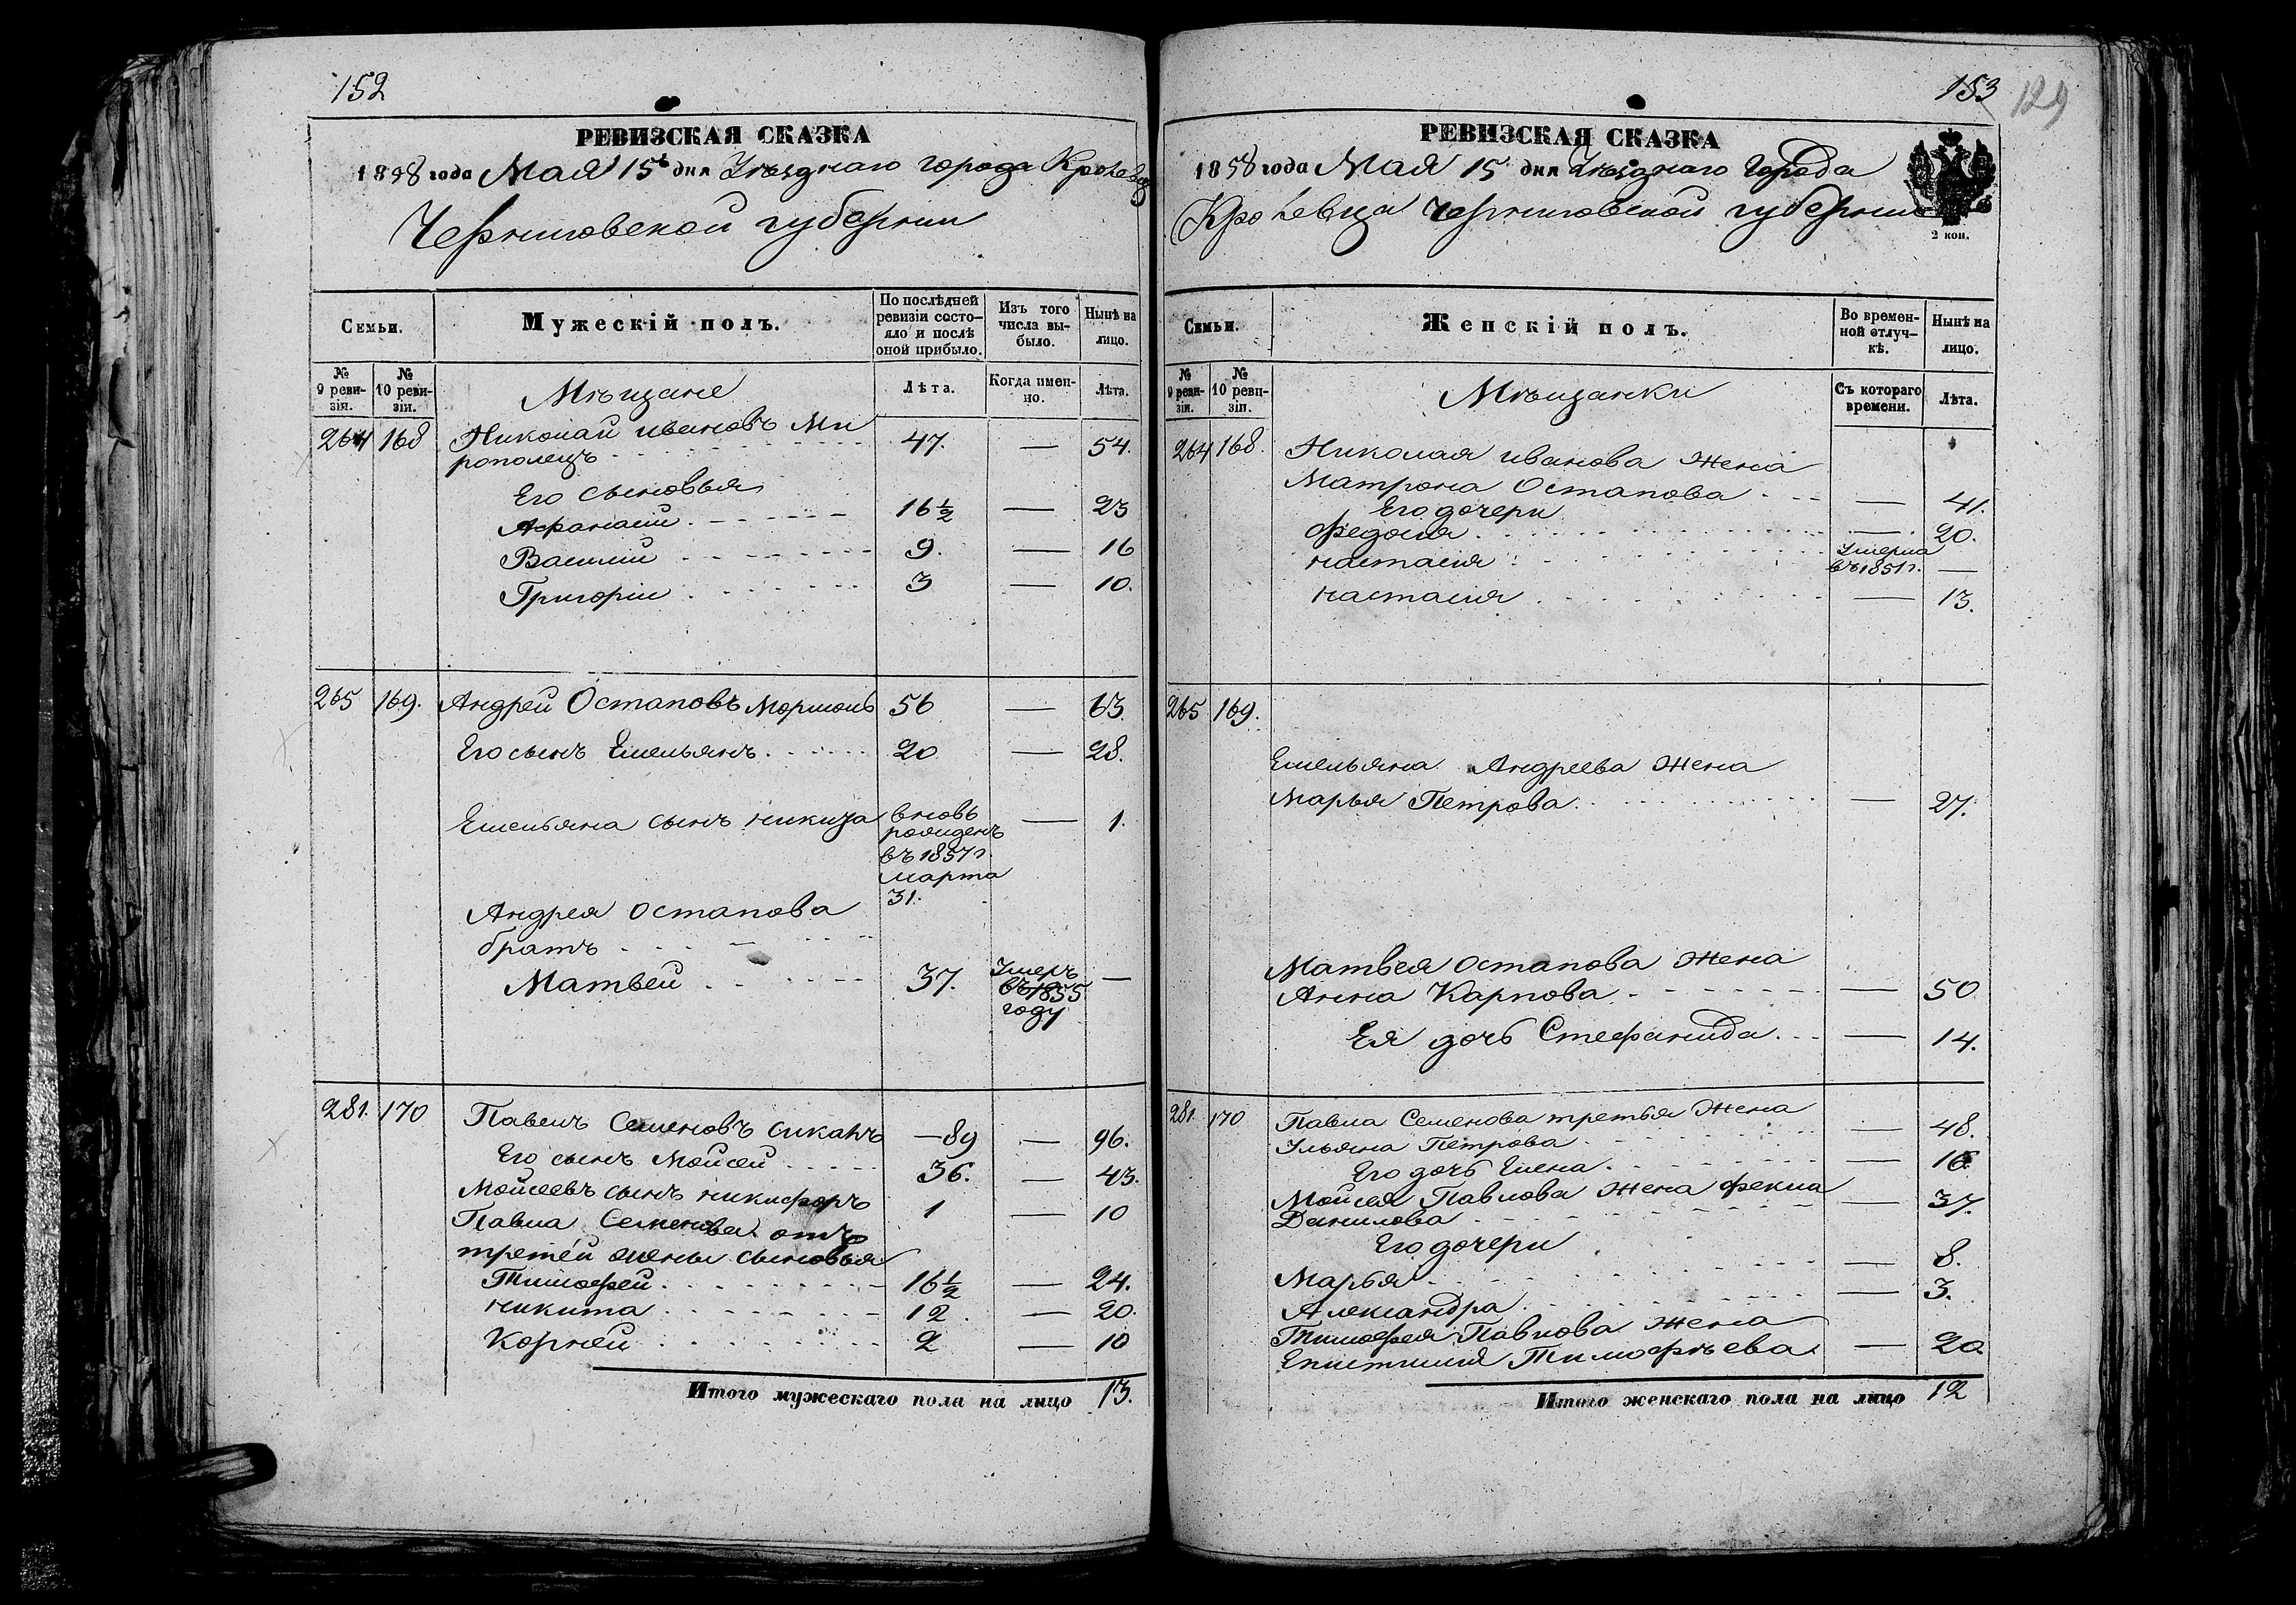 152
РЕВИЗСКАЯ СКАЗКА
1858 года Мая 15 дня Уѣзднаго города Кролевца
Черниговской губернiи
Семьи.
Мужескiй полъ.
По послѣдней ревизiи состо-
яло и послѣ
оной прибыло.
Изъ того
числа вы-
было.
Нынѣ на
лицо.
№
9 реви-
зiя.
№
10 реви-
зiи.
Мѣщане
Лѣта.
Когда имен-
но.
Лѣта.
264 168 Николай Ивановъ Ми
рополецъ 47. — 54.
Его сыновья
Афанасiй 16½ — 23
Василiй 9. — 16
Григорiй 3 — 10.
265 169. Андрей Остаповъ 56 — 63.
Его сынъ Емельянъ 20 — 28.
Емельяна сынъ Никита вновь — 1.
рожденъ
въ 1857 г.
марта
31.
Андрея Остапова
братъ
Матвей 37. Умеръ —
въ 1855
году
281. 170 Павелъ Семеновъ Сиканъ — 89 — 96.
Его сынъ Мойсей 36. — 43.
Мойсеевъ сынъ Никифоръ 1 — 10
Павла Семенова отъ
третей жены сыновья
Тимофей 16½ — 24.
Никита 12. — 20.
Корней 2 — 10
Итого мужескаго пола на лицо 13.
153
129
РЕВИЗСКАЯ СКАЗКА
1858 года Мая 15 дня Уѣзднаго Города
Кролевца Черниговской губернiи
2 коп.
Семьи.
Женскiй полъ.
Во времен-
ной отлуч-
кѣ.
Нынѣ на
лицо.
№
9 реви-
зiи.
№
10 реви-
зiи.
Мѣщанки
Съ котораго
времени.
Лѣта.
264 168. Николая Иванова жена
Матрона Остапова — 41.
Его дочери
Федосiя — 20.
Настасiя Умерла
въ 1851 г. —
Настасiя — 13.
265 169.
Емельяна Андреева жена
Марья Петрова — 27.
Матвея Остапова жена
Анна Карпова — 50.
Ея дочь Стефанида — 14.
281. 170 Павла Семенова третья жена
Ульяна Петрова — 48.
Его дочь Елена — 16.
Мойсея Павлова жена Фекла
Данилова — 37.
Его дочери
Марья — 8.
Александра — 3.
Тимофея Павлова жена
Епистимiя Тимофѣева — 20
Итого женскаго пола на лицо 12